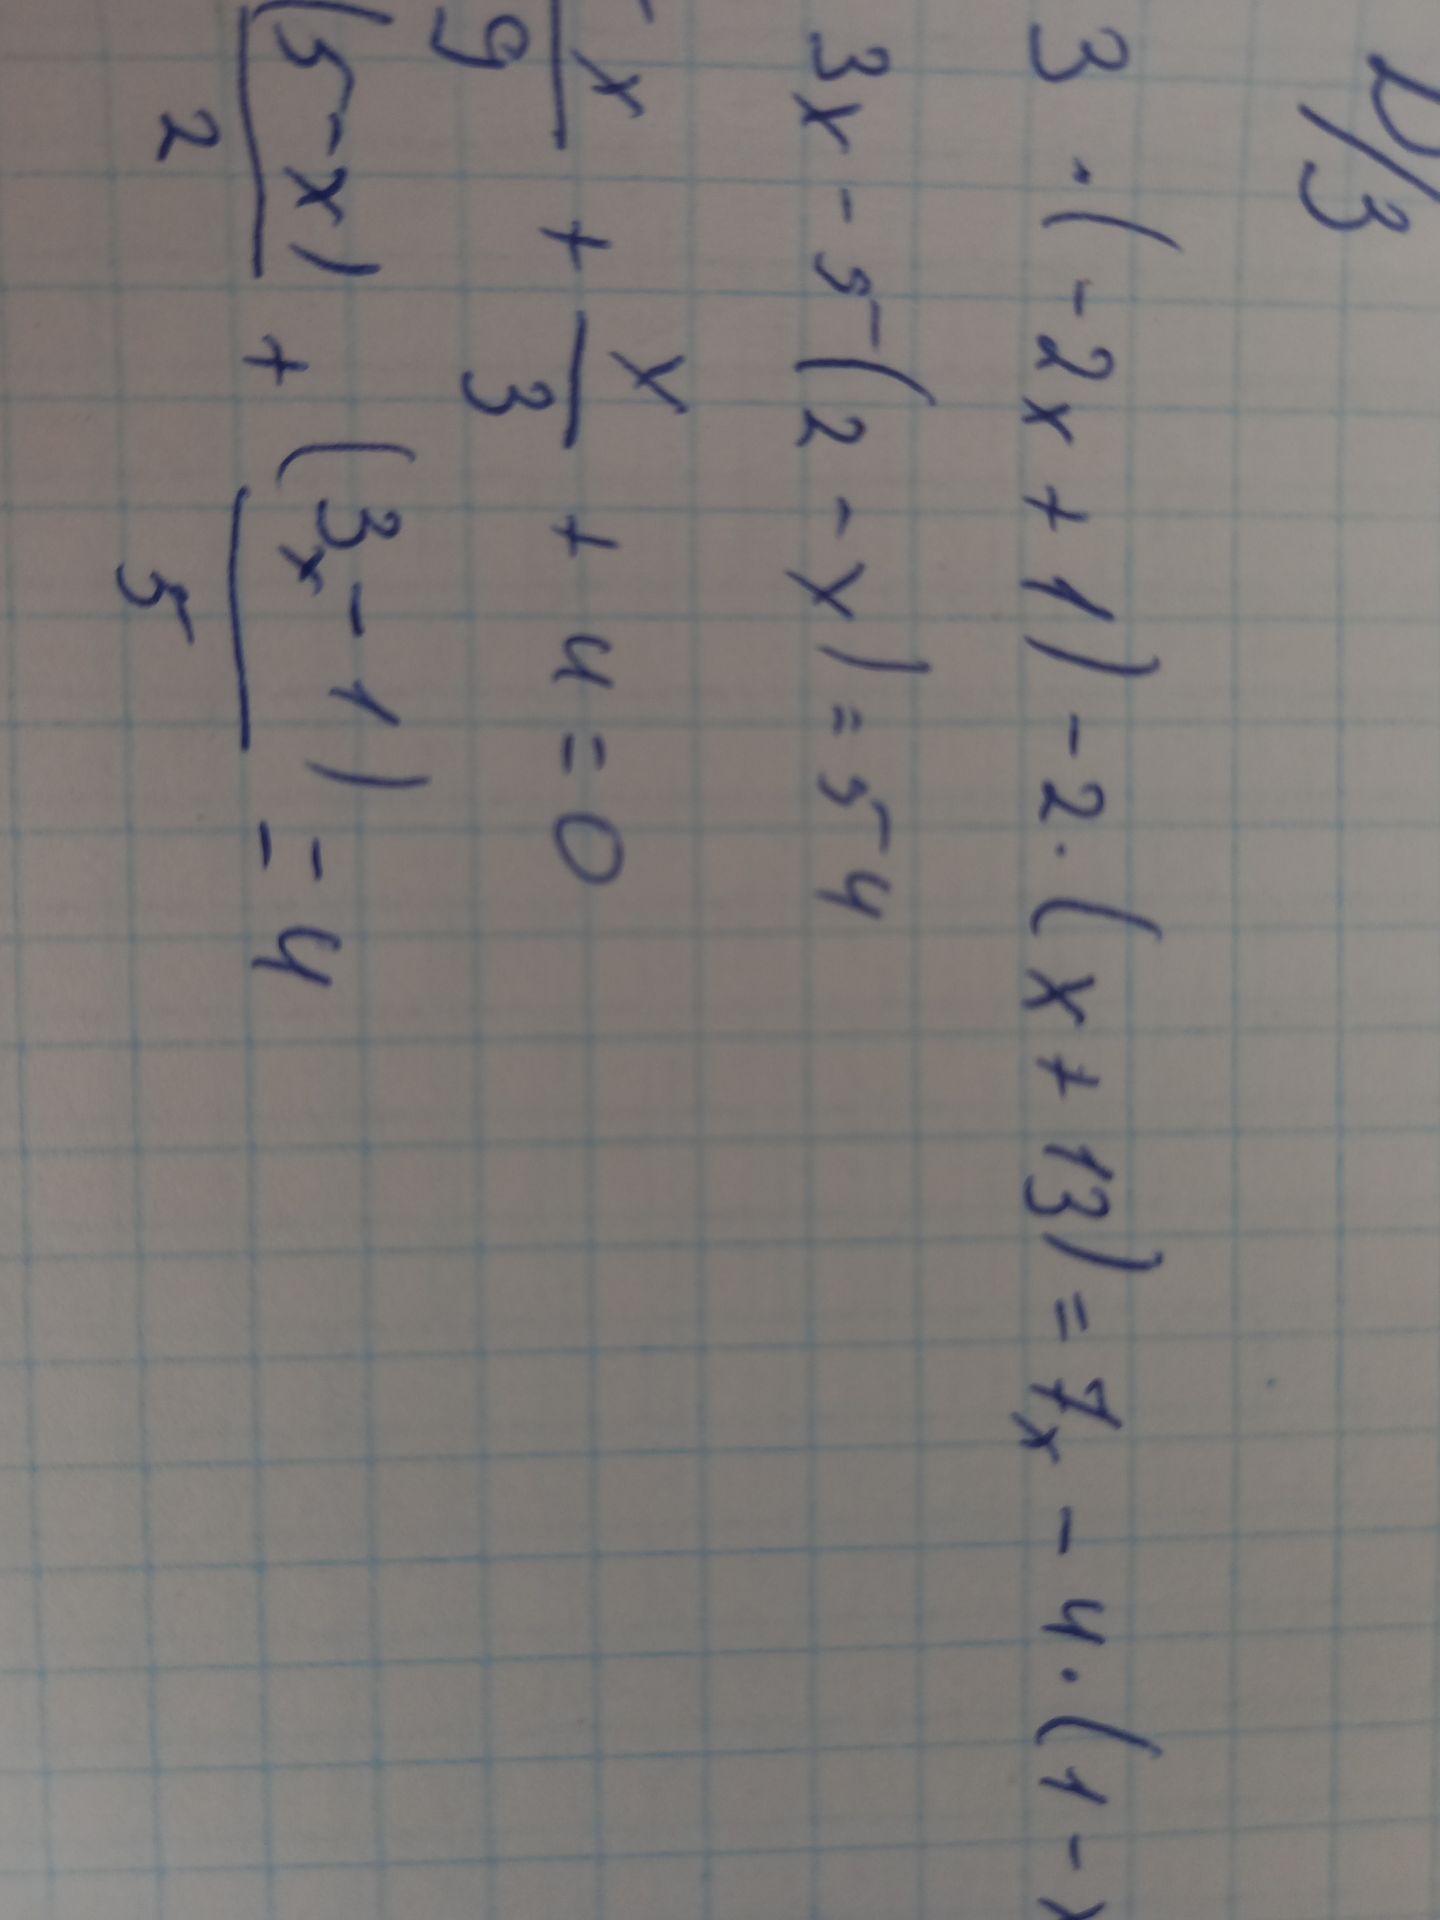 Д/З
3 · (-2x + 1) - 2 · (x + 13) = 7x - 4 · (1 - x
3x - 5(2 - x) = 54
-x/9 + x/3 + 4 = 0
(5 - x)/2 + (3x - 1)/5 = 4